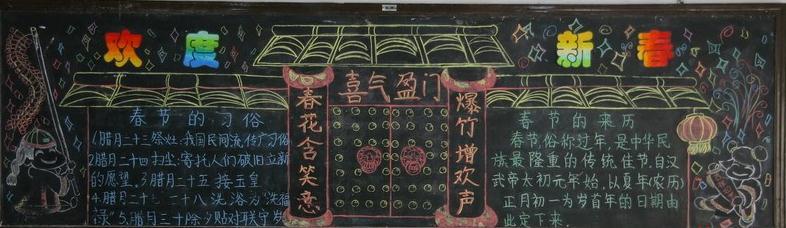 欢度新春
喜气盈门
春花含笑意
爆竹增欢声
春节的习俗
1.腊月二十三祭灶:我国民间流传广习俗
2腊月二十四扫尘:寄托人们破旧立新
的愿望。3腊月二十五接玉皇
4.腊月二十七二十八洗浴为"洗福
禄"5.腊月三十除夕贴对联守岁
春节的来历
春节,俗称过年,是中华民
族最隆重的传统佳节。自汉
武帝太初元年始,以夏年(农历)
正月初一为岁首年的日期由
此定下来.